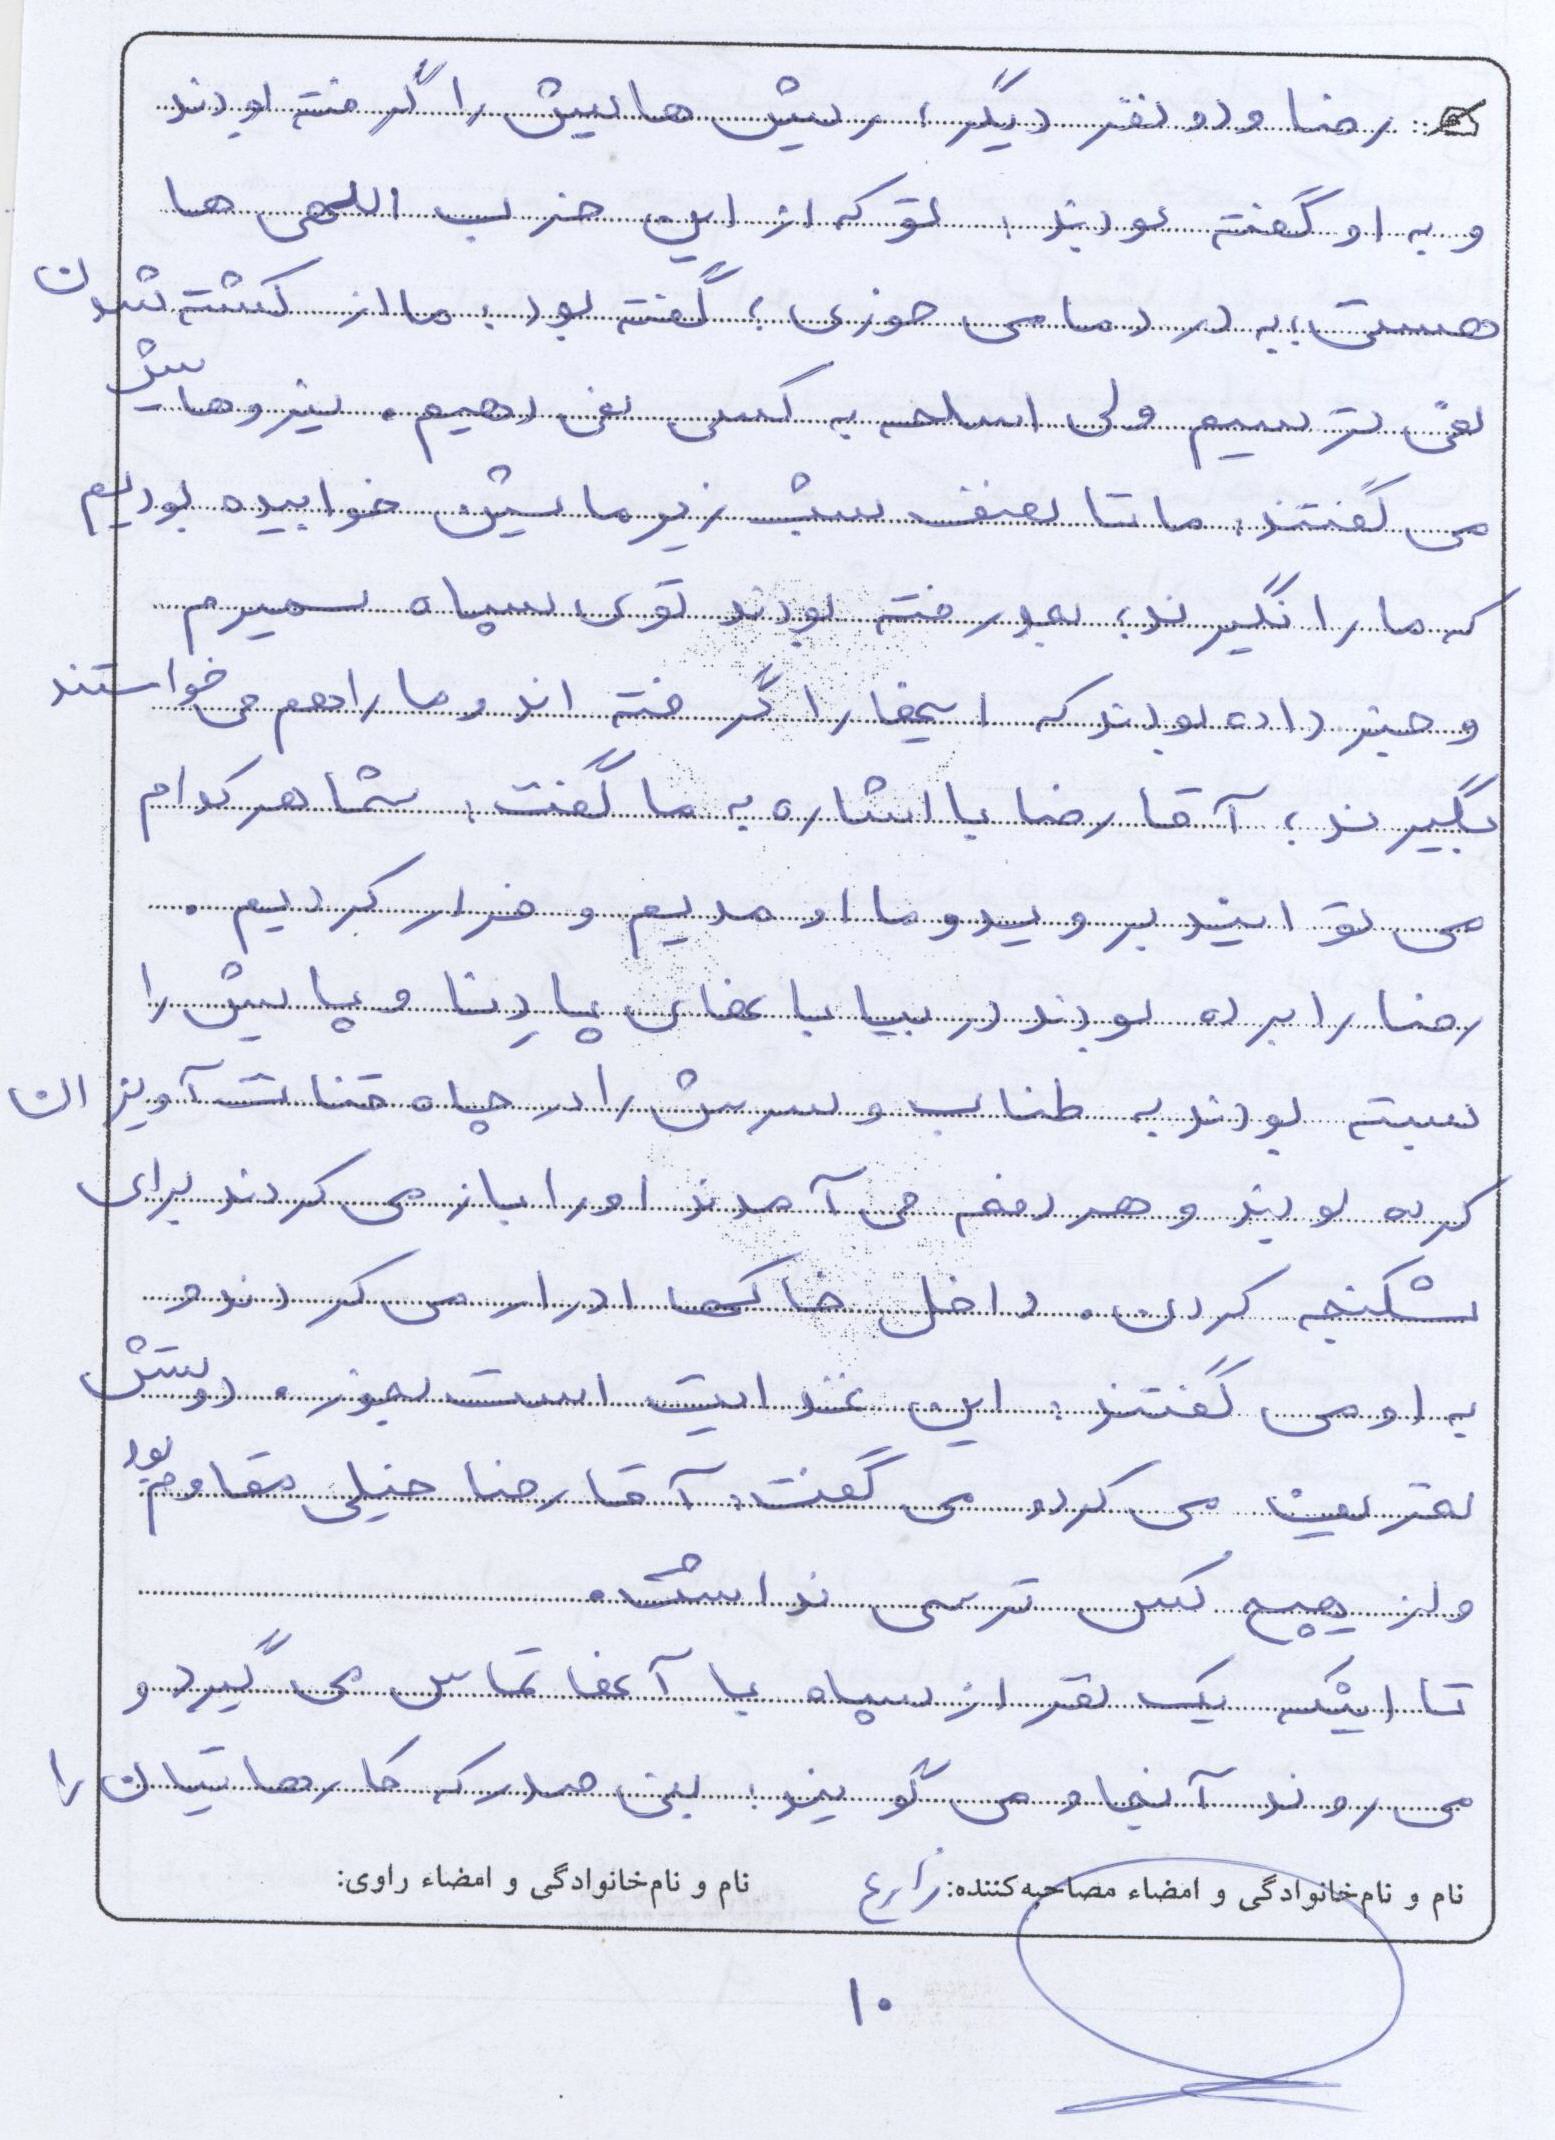 رضا و دو نفر دیگر، ریش هایش را گرفته بودند
و به او گفته بودند: تو که از این حزب اللهی ها
هستی؛ به درد ما می خوری؛ گفته بود: ما از کشته شدن
نمی ترسیم ولی اسلحه به کسی نمی دهیم. نیروهایش
می گفتند: ما تا نصف شب زیر ماشین خوابیده بودیم
که ما را نگیرند؛ بعد رفته بودند توی سپاه سمیرم
و خبر داده بودند که اینها را گرفته اند و ما را هم می خواستند
بگیرند؛ آقا رضا با اشاره به ما گفت: شما هر کدام
می توانید بروید و ما اومدیم و فرار کردیم.
رضا را برده بودند در بیابانهای پادِنا و پایش را
بسته بودند به طناب و سرش را در چاه قنات آویزان
کرده بودند و هر دفعه می آمدند او را باز می کردند برای
شکنجه کردن. داخل خاکها ادرار می کردند و
به او می گفتند: این غذایت است بخور. دوستش
تعریف می کرد و می گفت: آقا رضا خیلی مقاوم بود
و از هیچ کس ترسی نداشت.
تا اینکه یک نفر از سپاه با آنها تماس می گیرد و
می روند آنجا و می گویند: بنی صدر که کارهایتان را
نام و نام‌خانوادگی و امضاء مصاحبه‌کننده: زارع نام و نام‌خانوادگی و امضاء راوی:
۱۰